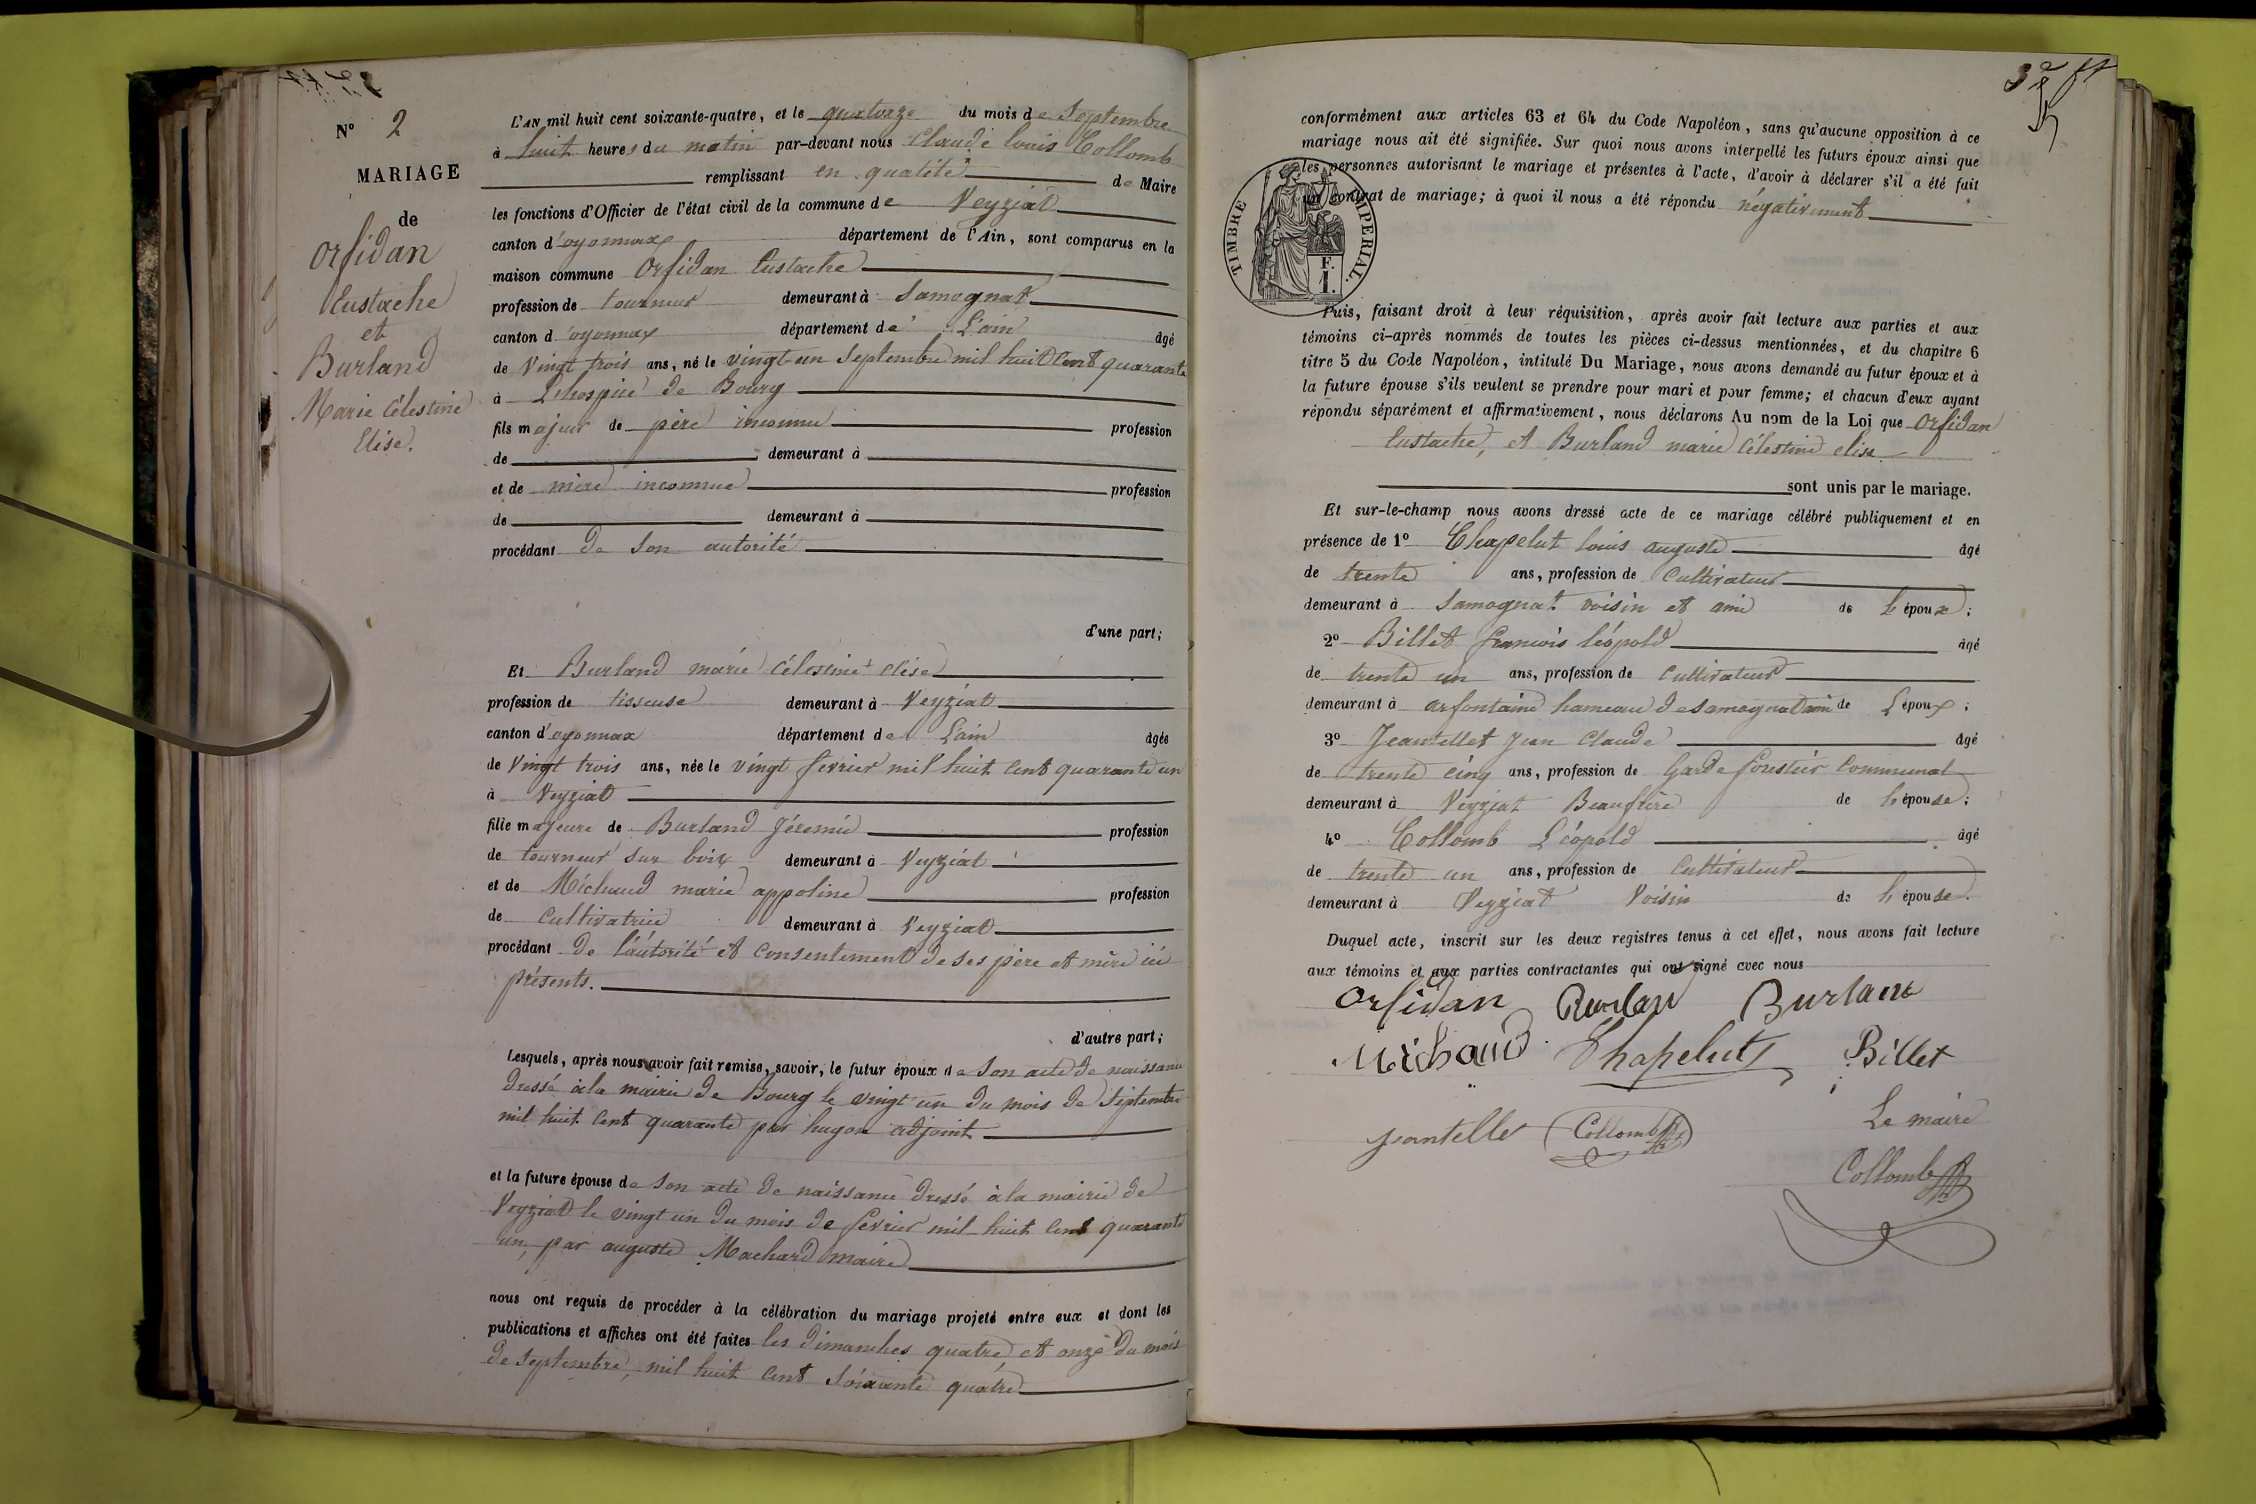 N° 2
MARIAGE
de
Orfidan
Eustache
et
Burland
Marie Célestine
Elise.
L'AN mil huit cent soixante-quatre, et le quatorze du mois de Septembre
à huit heures du matin par-devant nous Claude louis Collomb
remplissant en qualité de Maire
les fonctions d'Officier de l'état civil de la commune de Veyziat
canton d'oyonnax département de l'Ain, sont comparus en la
maison commune Orfidan Eustache
profession de tourneur demeurant à Samognat
canton d'oyonnax département de L'ain âgé
de Vingt trois ans, né le vingt un Septembre mil huit Cent quarante
à L'hospice de Bourg
fils majeur de père inconnu profession
de demeurant à
et de mère inconnue profession
de demeurant à
procédant de son autorité
d'une part;
Et Burland marie Célestine elise
profession de tisseuse demeurant à Veyziat
canton d'oyonnax département de L'ain âgée
de Vingt trois ans, née le vingt fevrier mil huit Cent quarante un
à Veyziat
fille majeure de Burland Jéremie profession
de tourneur sur bois demeurant à Veyziat
et de Michaud marie appoline profession
de Cultivatrice demeurant à Veyziat
procédant de l'autorité et Consentement de ses père et mère ici
présents.
d'autre part;
Lesquels, après nous avoir fait remise, savoir, le futur époux de Son acte de naissance
dressé à la mairie de Bourg le vingt un du mois de Septembre
mil huit Cent quarante par hugon adjoint
et la future épouse de Son acte de naissance dressé à la mairie de
Veyziat le vingt un du mois de fevrier mil huit Cent quarante
un, par auguste Machard maire
nous ont requis de procéder à la célébration du mariage projeté entre eux et dont les
publications et affiches ont été faites les dimanches quatre et onze du mois
de Septembre, mil huit Cent Soixante quatre
32
conformément aux articles 63 et 64 du Code Napoléon, sans qu'aucune opposition à ce
mariage nous ait été signifiée. Sur quoi nous avons interpellé les futurs époux ainsi que
les personnes autorisant le mariage et présentes à l'acte, d'avoir à déclarer s'il a été fait
un contrat de mariage; à quoi il nous a été répondu négativement
TIMBRE IMPERIAL.
F.
1.
Puis, faisant droit à leur réquisition, après avoir fait lecture aux parties et aux
témoins ci-après nommés de toutes les pièces ci-dessus mentionnées, et du chapitre 6
titre 5 du Code Napoléon, intitulé Du Mariage, nous avons demandé au futur époux et à
la future épouse s'ils veulent se prendre pour mari et pour femme; et chacun d'eux ayant
répondu séparément et affirmativement, nous déclarons Au nom de la Loi que Orfidan
Eustache, et Burland marie Célestine elise
sont unis par le mariage.
Et sur-le-champ nous avons dressé acte de ce mariage célébré publiquement et en
présence de 1° Chapelut louis auguste âgé
de trente ans, profession de Cultivateur
demeurant à Samognat voisin et ami de L'époux;
2° Billet francois léopold âgé
de trente un ans, profession de Cultivateur
demeurant à arfontaine hameau de samognat ami de L'époux;
3° Jeantellet Jean Claude âgé
de trente cinq ans, profession de Garde forestier Communal
demeurant à Veyziat Beaufrère de L'épouse;
4° Collomb Léopold âgé
de trente un ans, profession de Cultivateur
demeurant à Veyziat Voisin de L'épouse.
Duquel acte, inscrit sur les deux registres tenus à cet effet, nous avons fait lecture
aux témoins et aux parties contractantes qui ont signé avec nous
Orfidan Burlan Burland
Michaud Chapelut Billet
jeantellet Collomb
Le maire
Collomb